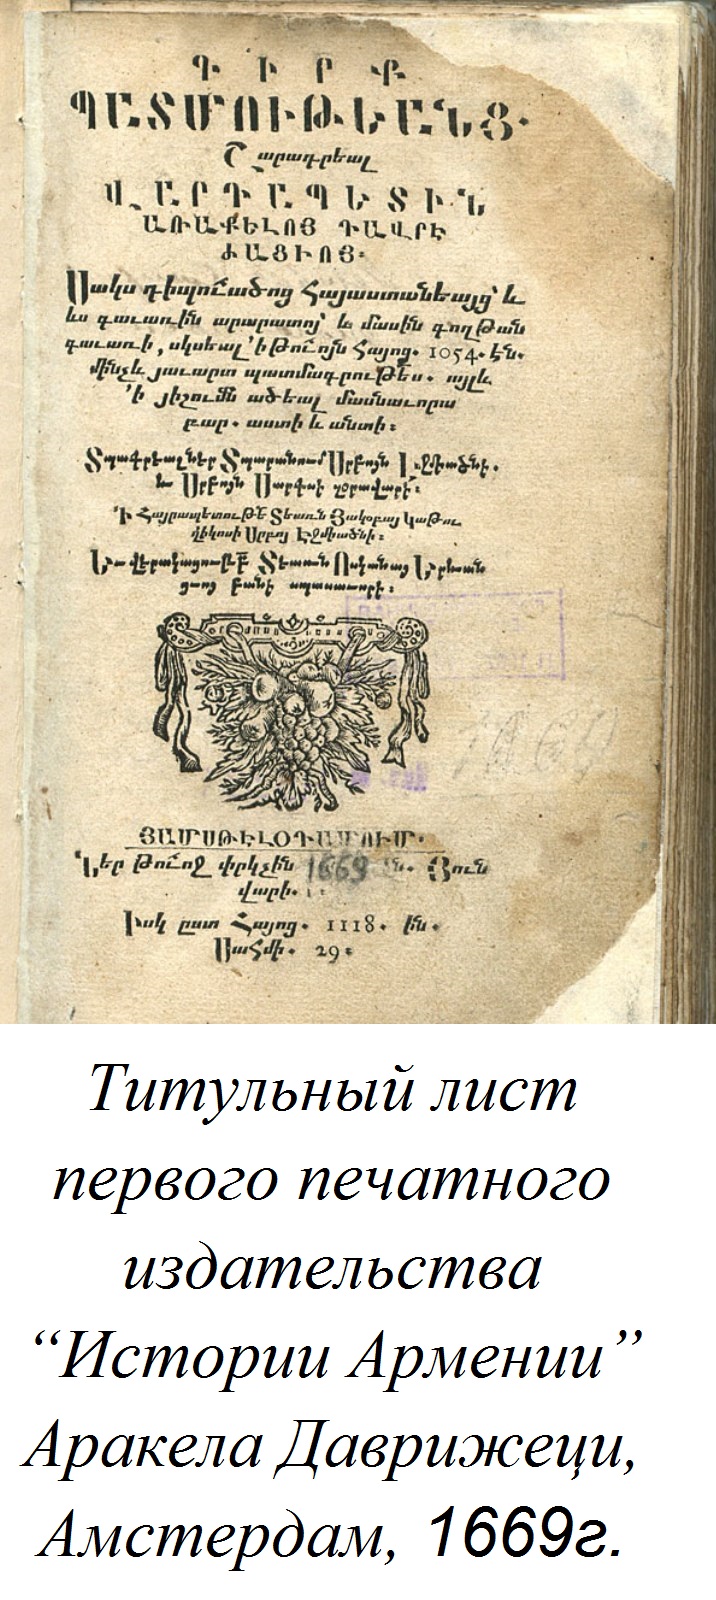 ԳԻՐՔ
ՊԱՏՄՈՒԹԵԱՆՑ.
Շարադրեալ
ՎԱՐԴԱՊԵՏԻՆ
ԱՌԱՔԵԼՈՅ ԴԱՎՐԷ
ԺԱՑՒՈՅ.
Սակս դիպուածոց Հայաստանեայց և
ևս գաւառին արարատոյ և մասին գողթան
գաւառի, սկսեալ ՚ի Թուոյն Հայոց. 1054. էն.
մինչև յաւարտ պատմագրութես. այլև
՚ի յիշումն ածեալ մասնաւորա
բար. աստի և անտի։
Տպագրեալ Տպարանում Սրբոյն Էջմիածնի.
և Սրբոյն Սարգսի զօրավարի։
՚Ի Հայրապետութե Տեառն Յակօբայ Կաթու
ղիկոսի Սրբոյ Էջմիածնի։
Տեառն Ոսկանայ Երևան
ցւոյ բանի սպասաւորի։
ՅԱՄՍԹԵԼՕԴԱՄՈՒՄ.
Թուոջ փրկչին 1669 ն. Յուն
վարի.
Իսկ ըստ Հայոց. 1118. ին.
Սահմի. 29։
Титульный лист
первого печатного
издательства
“Истории Армении”
Аракела Даврижеци,
Амстердам, 1669г.